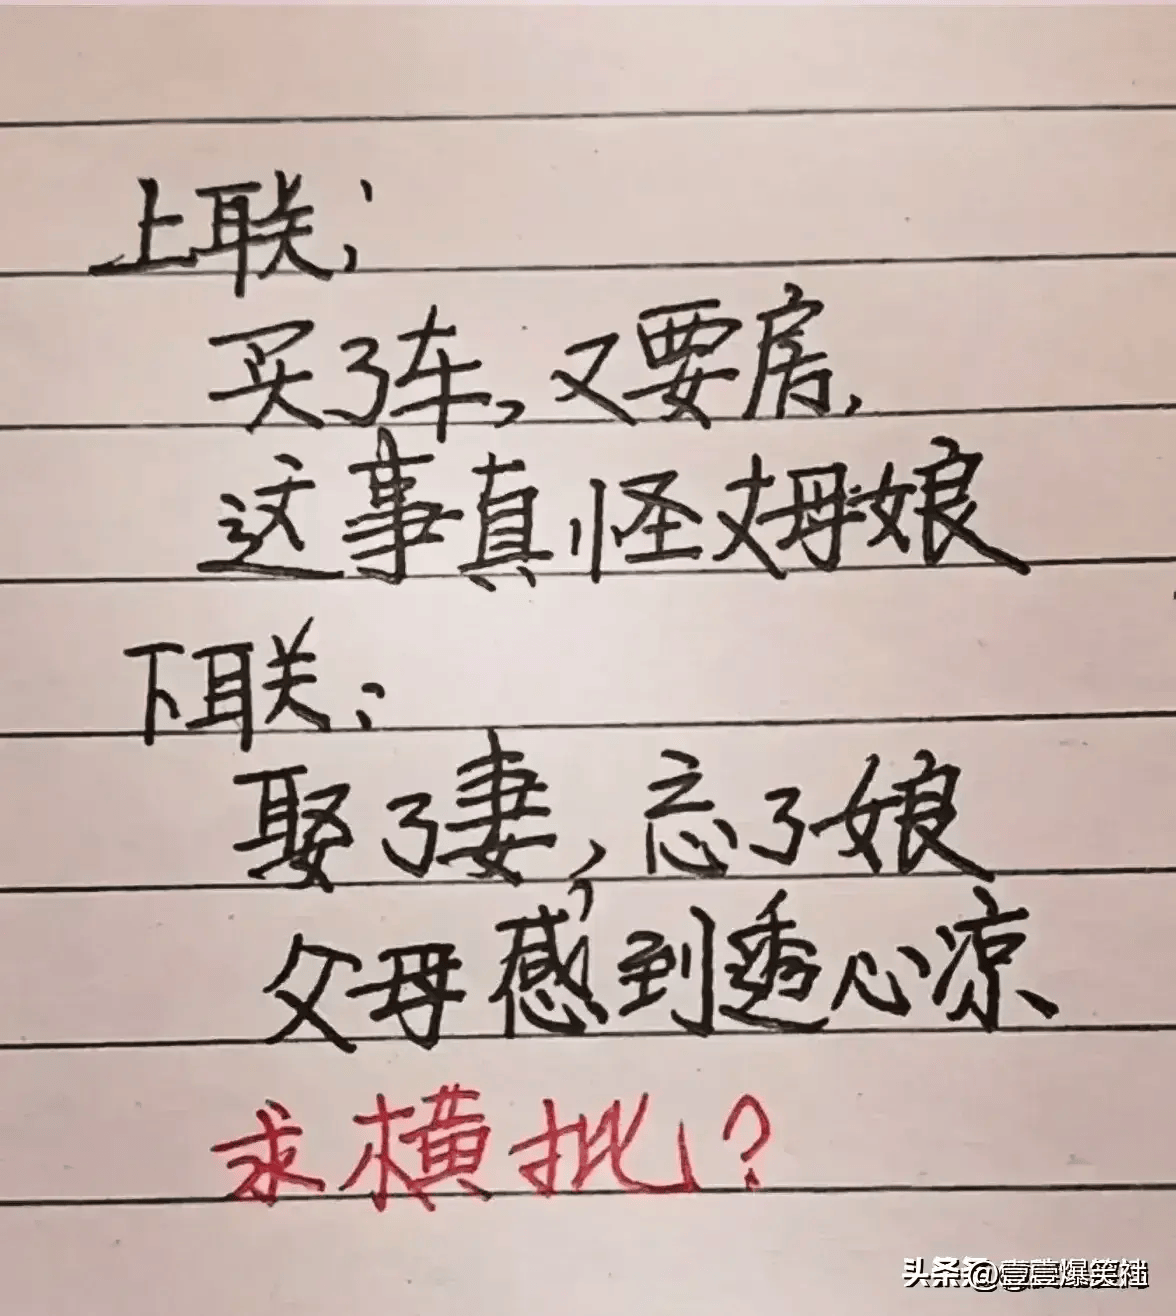 上联：
买了车，又要房，
这事真怪丈母娘
下联：
娶了妻，忘了娘，
父母感到透心凉、
求横批？
头条 @壹壹爆笑社